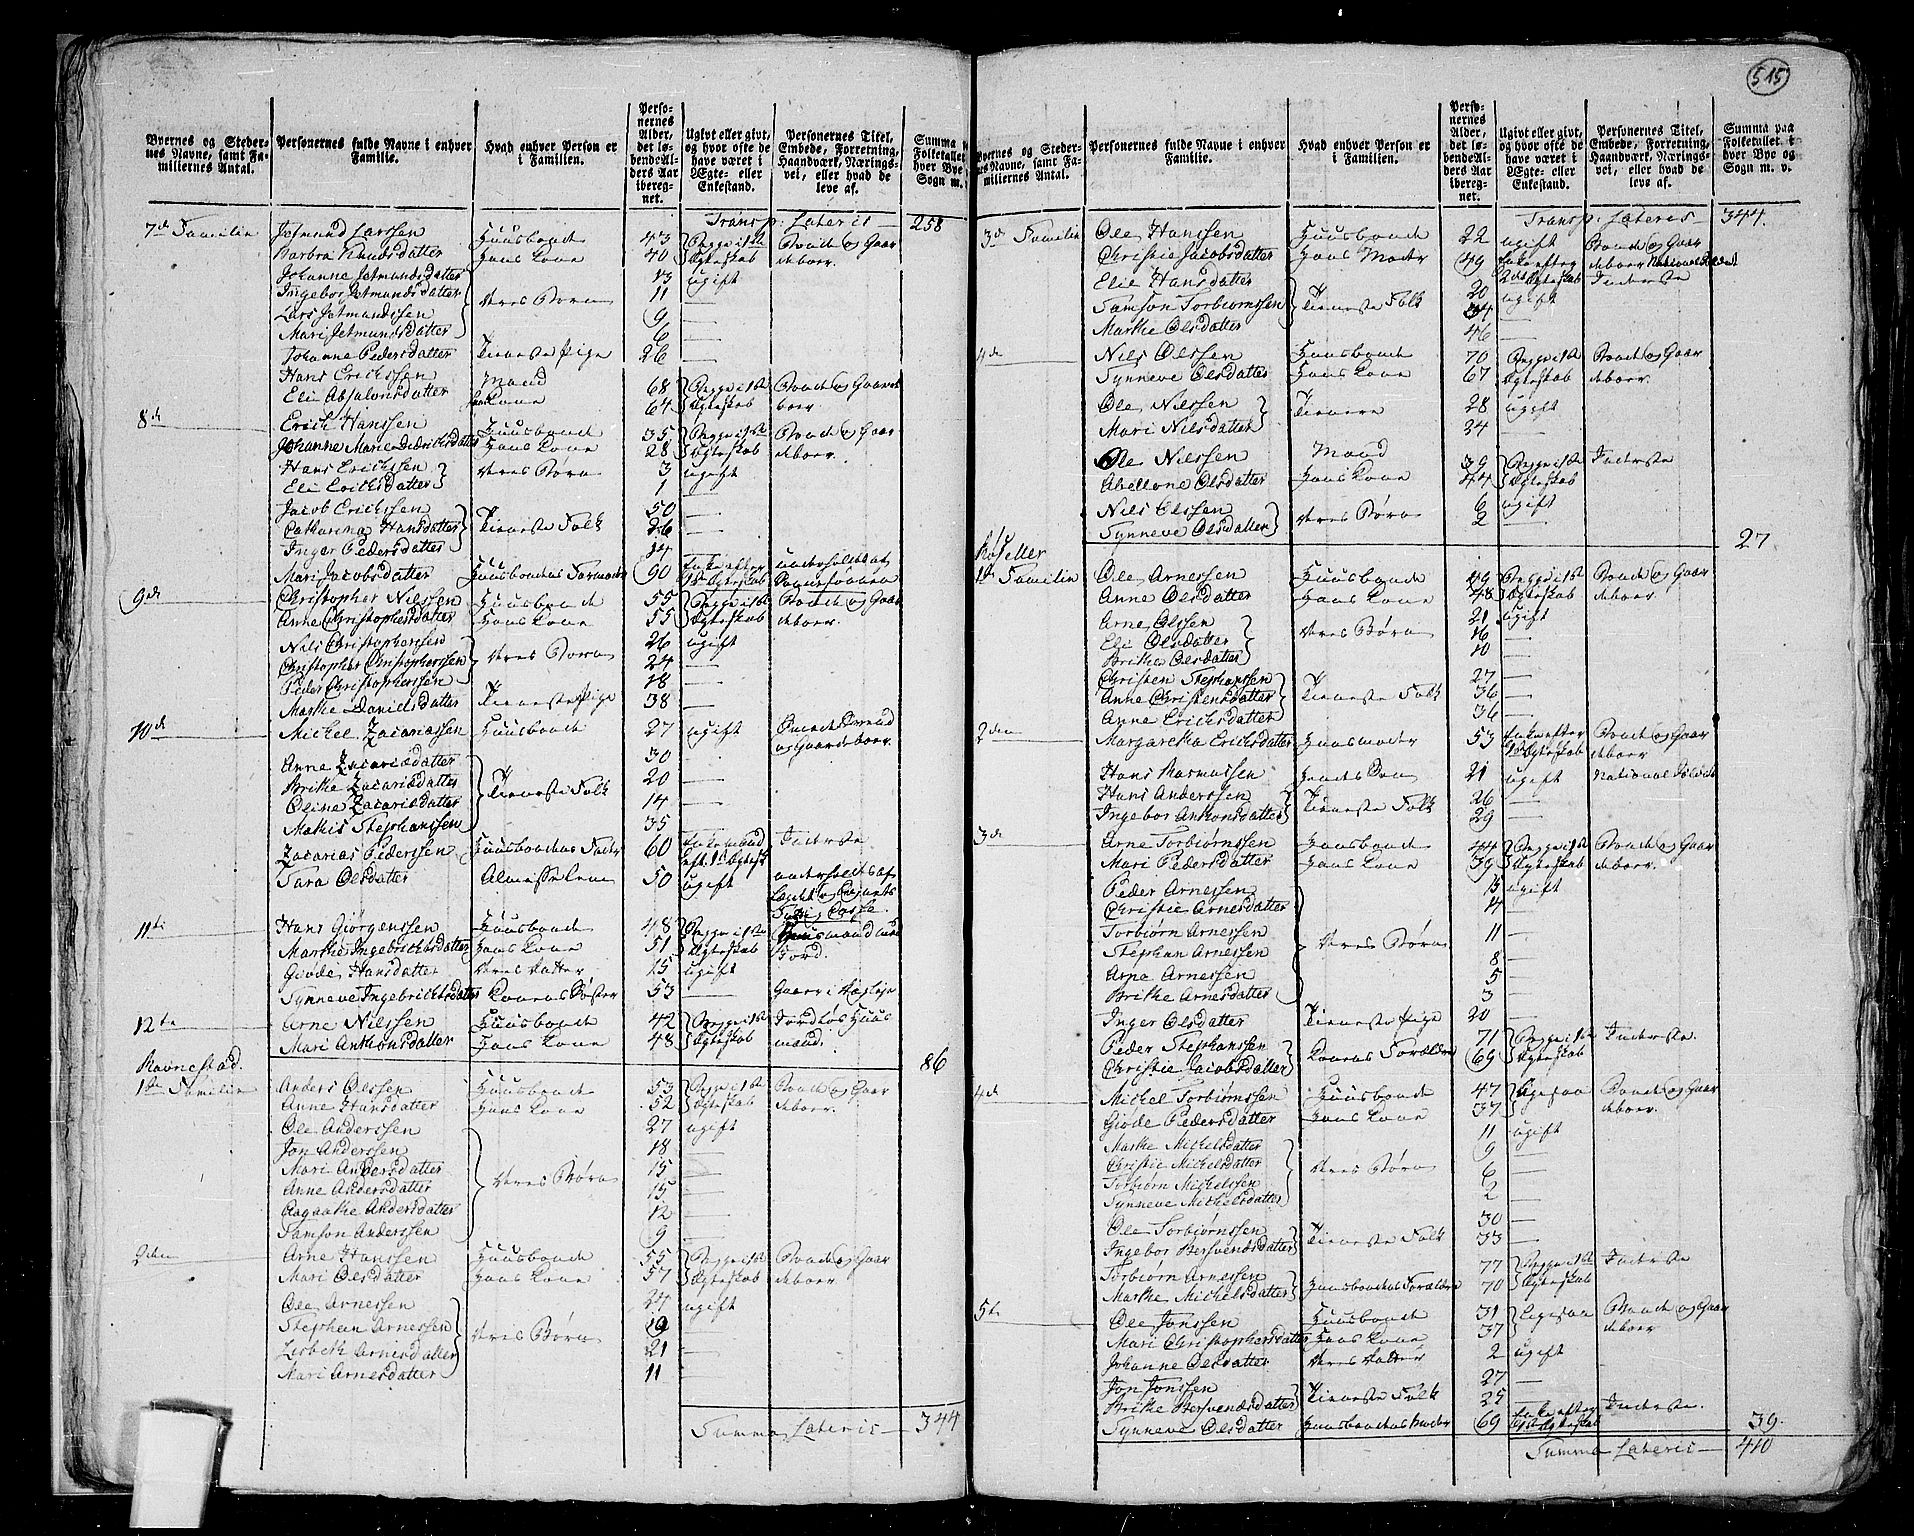 515
Byernes og Stedernes Navne, samt Familiernes Antal.
Personernes fulde Navne i enhver Familie.
Hvad enhver Person er i Familien.
Personernes Alder, det løbende Alders Aar iberegnet.
Ugivt eller givt, og hvor ofte de have været i Ægte- eller Enkestand.
Personernes Titel, Embede, Forretning, Haandværk, Næringsvei, eller hvad de leve af.
Transp: Lateris 258
7de Familie Jetmund Larssen Huusbonde 43 Begge i 1ste Bonde og Gaar
Barbra Knudsdatter Hans Kone 40 Ægteskab deboer
Johanne Jetmundsdatter 13 ugift
Ingebor Jetmundsdatter Deres Børn 11 —
Lars Jetmundssen 9 —
Mari Jetmundsdatter 6 —
Johanne Pedersdatter Tieneste Pige 26 —
Hans Erichssen Mand 68 Begge i 1ste Bonde og Gaarde
Eli Absalonsdatter Kone 64 Ægteskab boer.
8de Erich Hanssen Huusbonde 35 Begge i 1ste Bonde og Gaar
Johanne Marie Didrichsdatter Hans Kone 28 Ægteskab deboer.
Hans Erichssen Deres Børn 3 ugift
Eli Erichsdatter 1 —
Jacob Erichssen 50 —
Catharina Hansdatter Tieneste Folk 26 —
Inger Pedersdatter 14
Mari Jacobsdatter Huusbondens Formoder 90 Enke efter underholdes af
1ste Ægteskab
9de Christopher Nilssen Huusbonde 55 Begge i 1ste Bonde og Gaar
Anne Christophersdatter Hans Kone 55 Ægteskab deboer.
Nils Christopherssen 26 ugift
Christopher Christopherssen Deres Børn 24 —
Peder Christopherssen 18 —
Marthe Danielsdatter Tieneste Pige 38 —
10de Michel Zacariassen Huusbonde 27 ugift
og Gaardeboer.
Anne Zacariasdatter 30
Brithe Zacariasdatter 20 —
Oline Zacariasdatter Tieneste Folk 14 —
Mathis Stephanssen 35
Zacarias Pederssen Huusbondens Fader 60 Enkemand Inderste
eft. 1ste Ægtesk.
Tara Olsdatter Almisse Lem 50 ugift underholdes af
11te Hans Giørgenssen Huusbonde 48 Begge i 1ste Huusmand med
Marthe Ingebrichtsdatter Hans Kone 51 Ægteskab Jord.
Giøde Hansdatter Deres Datter 15 ugift
Synneve Ingebrichtsdatter Konens Søster 53 —
12te Arne Nilssen Huusbonde 42 Begge i 1ste Jordløs Huus
Mari Anthonsdatter Hans Kone 48 Ægteskab mand.
86
Ravnestad.
1ste Familie Anders Olssen Huusbonde 53 Begge i 1ste Bonde og Gaar
Anne Hansdatter Hans Kone 52 Ægteskab deboer.
Ole Anderssen 27 ugift
Jon Anderssen 18 —
Mari Andersdatter 15 —
Anne Andersdatter Deres Børn 15 —
Aagaathe Andersdatter 12 —
Samson Anderssen 9 —
2den Arne Hanssen Huusbonde 55 Begge i 1ste Bonde og Gaar
Mari Olsdatter Hans Kone 57 Ægteskab deboer
Ole Arnessen 24 ugift
Stephan Arnessen Deres Børn 19 —
Lisbeth Arnesdatter 21 —
Mari Arnesdatter 11 —
Summa Lateris 344
Byernes og Stedernes Navne, samt Familiernes Antal.
Personernes fulde Navne i enhver Familie.
Hvad enhver Person er i Familien.
Personernes Alder, det løbende Alders Aar iberegnet.
Ugivt eller givt, og hvor ofte de have været i Ægte- eller Enkestand.
Personernes Titel, Embede, Forretning, Haandværk, Næringsvei, eller hvad de leve af.
Summa paa Folketallet i hver Bye og Sogn m. v.
Transp: Lateris 344.
3de Familie Ole Hanssen Huusbonde 22 ugift Bonde og Gaar
Christie Jacobsdatter Hans Moder 49 Enke efter deboer National Soldat
2det Ægteskab Inderste
Elie Hansdatter 20 ugift
Samson Torbiørnssen Tieneste Folk 34 —
Marthe Olsdatter 46 —
4de Nils Olssen Huusbonde 70 Begge i 1ste Bonde og Gaar
Synneve Olsdatter Hans Kone 67 Ægteskab deboer.
Ole Nilssen Tienere 28 ugift
Mari Nilsdatter 24 —
Ole Nilssen Mand 39 Begge i 1ste Inderste
Abellone Olsdatter Hans Kone 44 Ægteskab
Nils Olssen Deres Børn 6 ugift
Synneve Olsdatter 2 —
27
1ste Familie Ole Arnessen Huusbonde 49 Begge i 1ste Bonde og Gaar
Anne Olsdatter Hans Kone 48 Ægteskab deboer.
Arne Olssen 21 ugift
Eli Olsdatter Deres Børn 16 —
Brithe Olsdatter 10 —
Christen Stephanssen 27 —
Anne Christensdatter Tieneste Folk 36 —
Anne Erichsdatter 36 —
2den Margaretha Erichsdatter Huusmoder 53 Enke efter Bonde og Gaar
1ste Ægteskab deboer.
Hans Rasmussen Hendes Søn 21 ugift National Soldat
Hans Anderssen Tieneste Folk 26 —
Ingebor Anthonsdatter 29 —
3de Arne Torbiørnssen Huusbonde 44 Begge i 1ste Bonde og Gaar
Mari Pedersdatter Hans Kone 39 Ægteskab deboer
Peder Arnessen 15 ugift
Christie Arnesdatter 14 —
Torbiørn Arnessen Deres Børn 11 —
Stephan Arnessen 8 —
Arne Arnessen 5 —
Brithe Arnesdatter 3 —
Inger Olsdatter Tieneste Pige 20 —
Peder Stephanssen Konens Forældre 71 Begge i 1ste Inderste.
Christie Jacobsdatter 69 Ægteskab
4de Michel Torbiørnssen Huusbonde 47 Ligesaa Bonde og Gaar
Giøde Pedersdatter Hans Kone 37 deboer.
Marthe Michelsdatter 11 ugift
Christie Michelsdatter Deres Børn 9 —
Torbiørn Michelssen 6 —
Synneve Michelsdatter 2 —
Ole Torbiørnssen Tieneste Folk 30 —
Ingebor Bersvendsdatter 33 —
Torbiørn Arnessen Huusbondens Forældre 77 Begge i 1ste Inderste
Marthe Michelsdatter 70 Ægteskab
5te Ole Jonssen Huusbonde 31 Ligesaa Bonde og Gaar
Mari Christophersdatter Hans Kone 37 deboer.
Johanne Olsdatter Deres Datter 2 ugift
Jon Jonssen Tieneste Folk 27 —
Brithe Bersvendsdatter 25 —
Synneve Olsdatter Huusbondens Moder 69 Enke efter Inderste.
1ste Ægteskab 39.
Summa Lateris 410